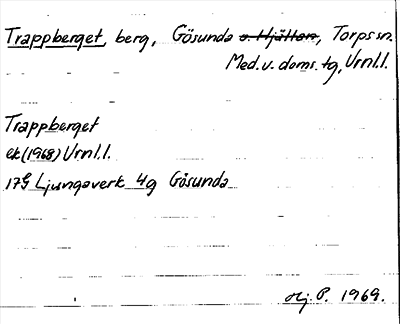 Trappberget, berg, Gösunda o. Hjälten, Torps sn.
Med. v. doms. tg, Vrnl. l.
Trappberget
ek (1968) Vrnl. l.
17G Ljungaverk 4g Gösunda
P. 1969.